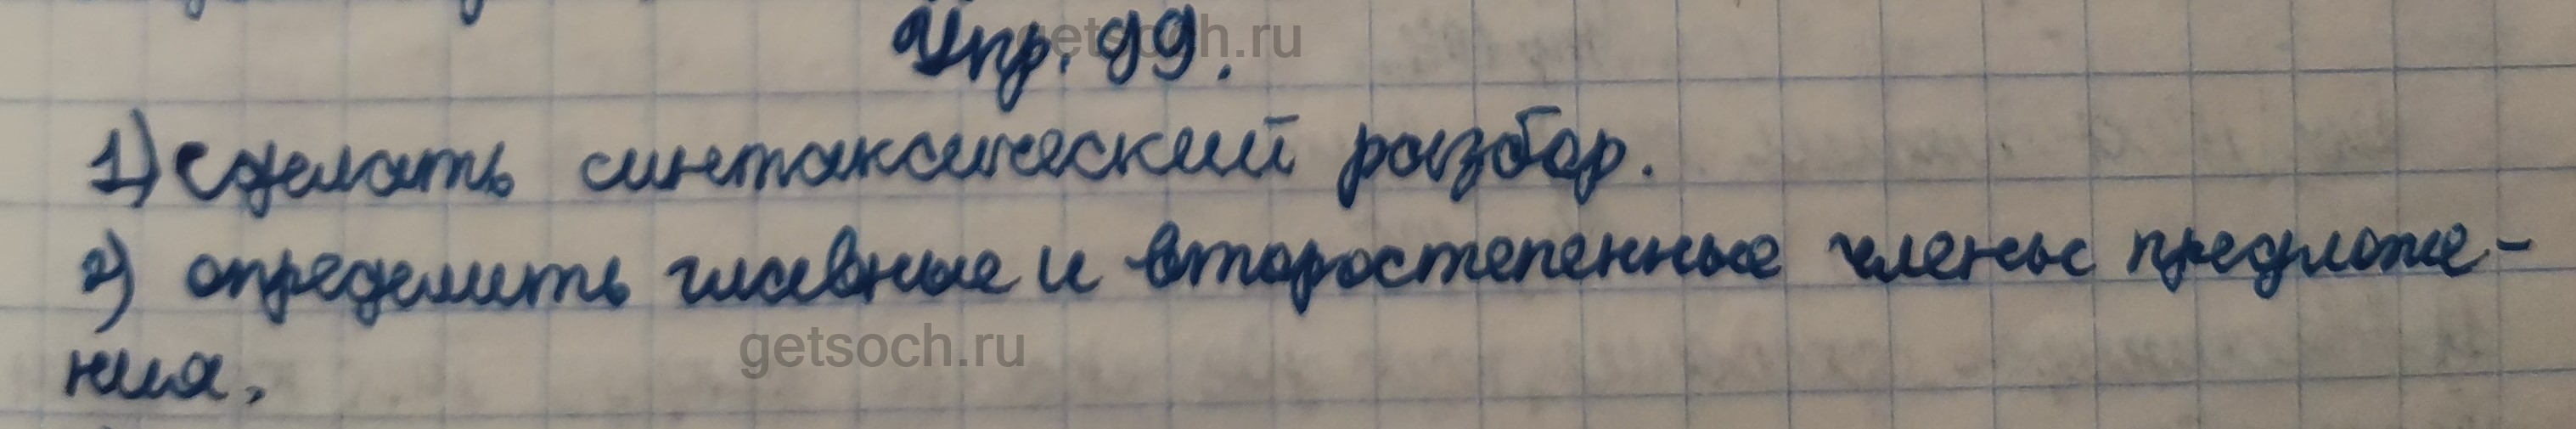 Упр. 99.
1) Сделать синтаксический разбор.
2) определить главные и второстепенные члены предложе-
ния.
getsoch.ru
getsoch.ru